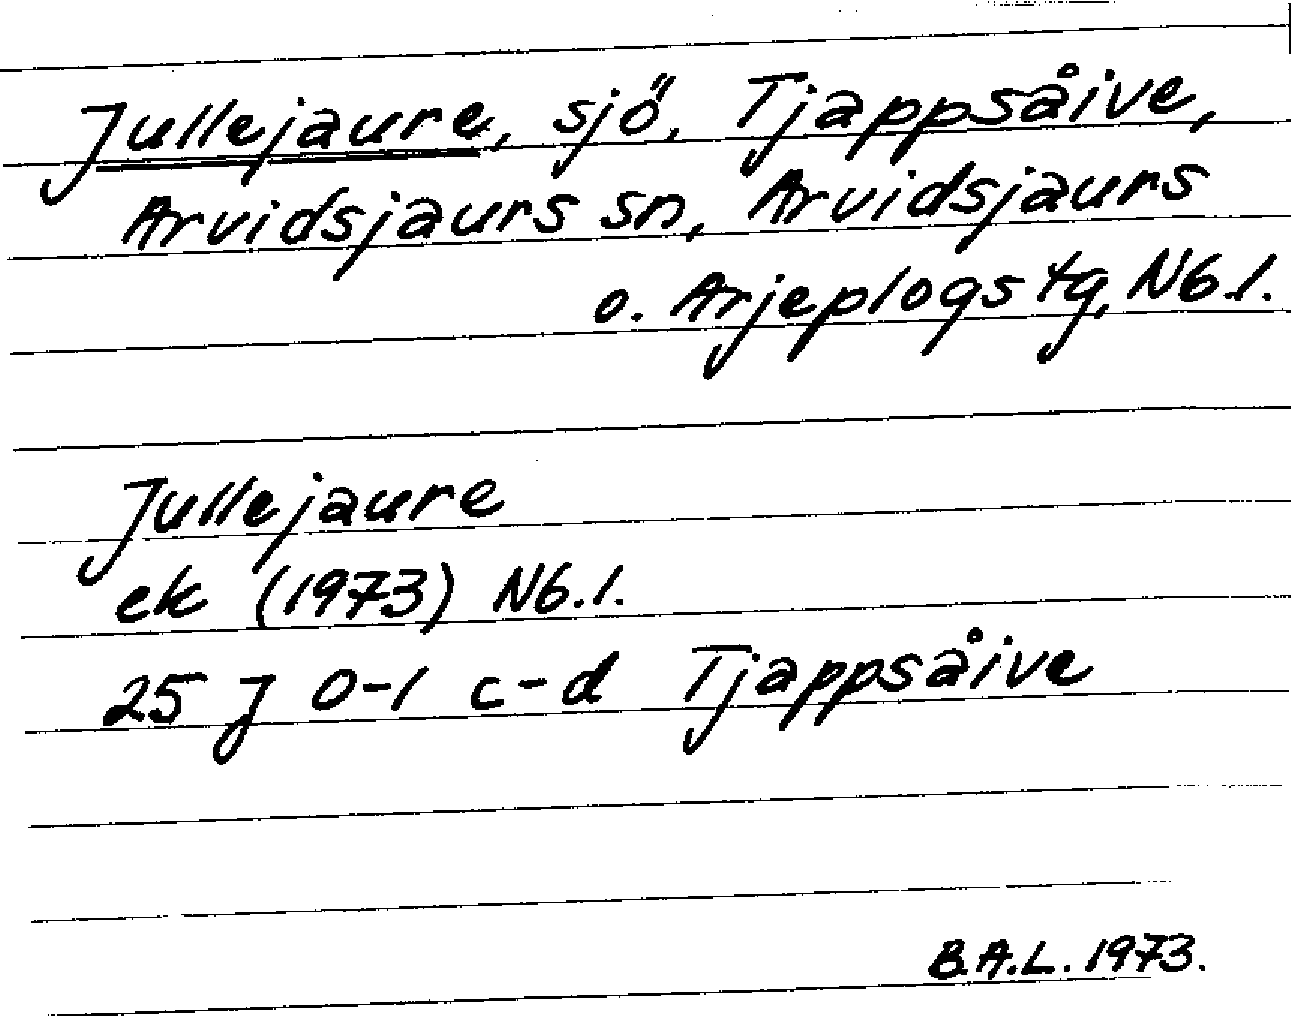 Jullejaure, sjö, Tjappsåive,
Arvidsjaurs sn, Arvidsjaurs
o. Arjeplogs tg, N6.1.
Jullejaure
ek (1973) N6.1.
25 J 0-1 c-d Tjappsåive
B.A.L. 1973.